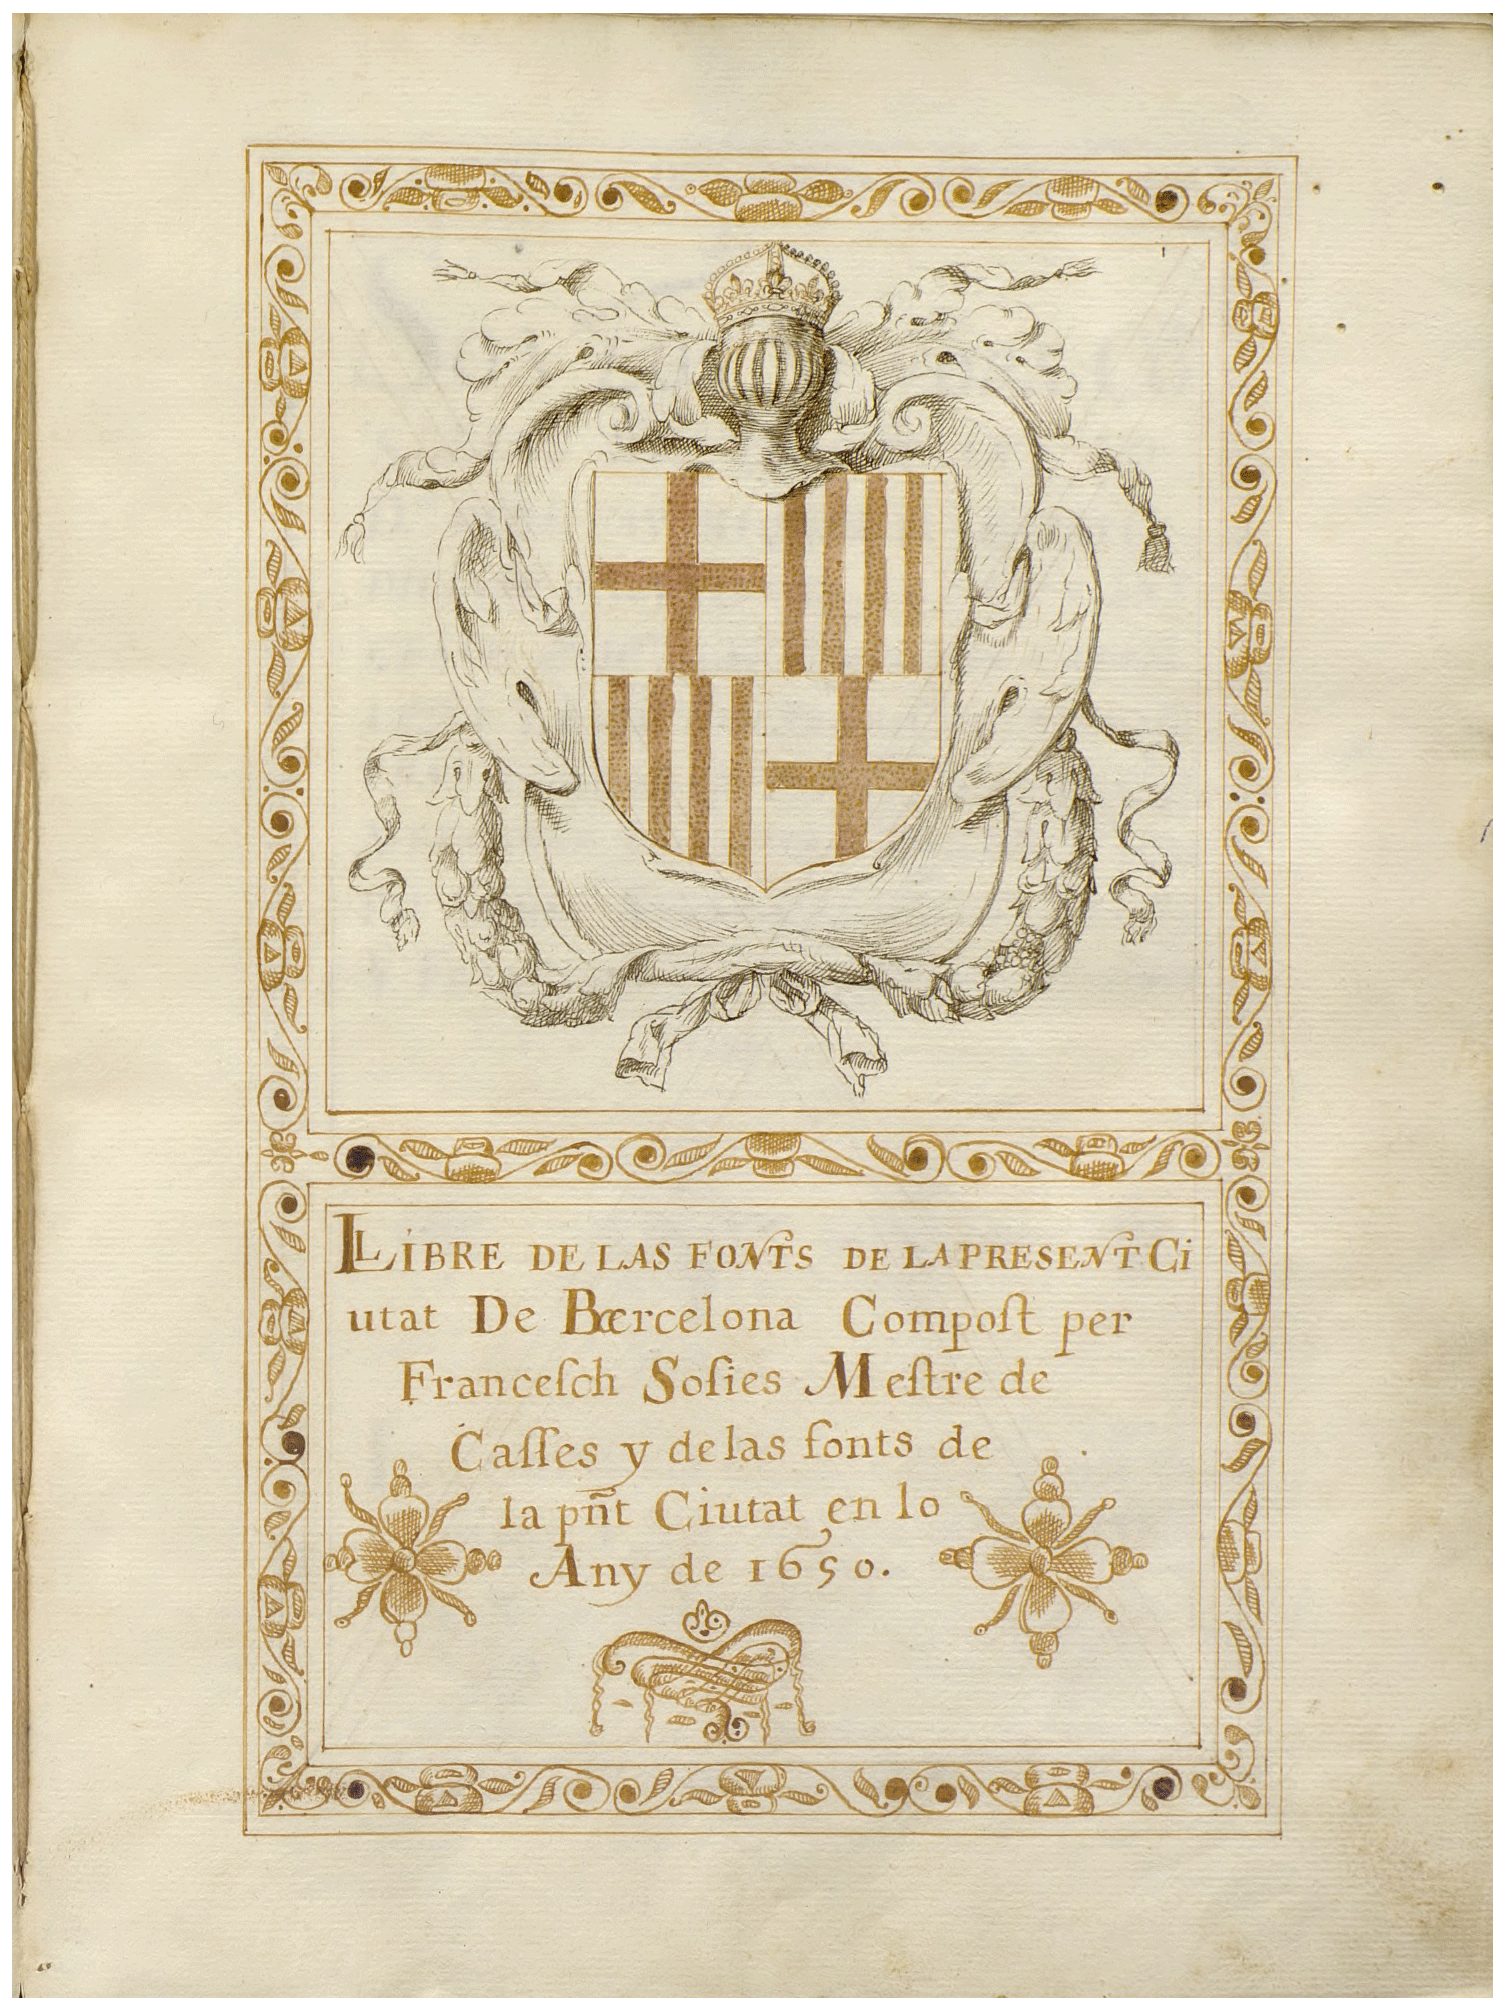 LLIBRE DE LAS FONTS DE LA PRESENT CI
utat De Barcelona Compoſt per
Franceſch Soſies Meſtre de
Caſſes y de las fonts de
la pn̄t Ciutat en lo
Any de 1650.